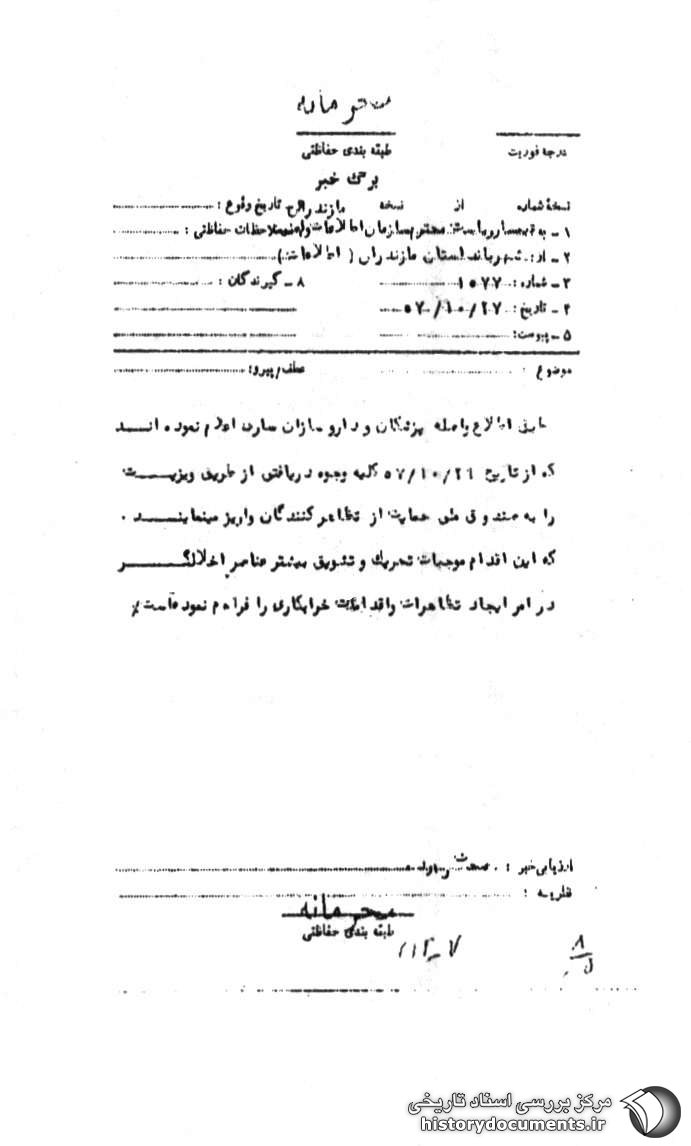 محرمانه
درجه فوریت
طبقه بندی حفاظتی
برگ خبر
نسخه شماره از نسخه مازندران تاریخ وقوع :
۱ - به تیمسار ریاست محترم سازمان اطلاعات و امنیت ملاحظات حفاظتی :
۲ - از : شهربانی استان مازندران ( اطلاعات )
۳ - شماره : ۱۵۷۷ ۸ - گیرندگان :
۴ - تاریخ : ۵۷/۱۰/۲۷
۵ - پیوست :
موضوع : عطف/پیرو :
طبق اطلاع واصله پزشکان و دارو سازان ساری اعلام نموده انــد
که از تاریخ ۵۷/۱۰/۲۶ کلیه وجوه دریافتی از طریق ویزیــت
را به صندوق ملی حمایت از تظاهر کنندگان واریز مینماینــد .
که این اقدام موجبات تحریک و تشویق بیشتر عناصر اخلالگــر
در امر ایجاد تظاهرات و اقدامات خرابکاری را فراهم نموده است
ارزیابی خبر : صحت دارد
نظریه :
محرمانه
طبقه بندی حفاظتی
مرکز بررسی اسناد تاریخی
historydocuments.ir